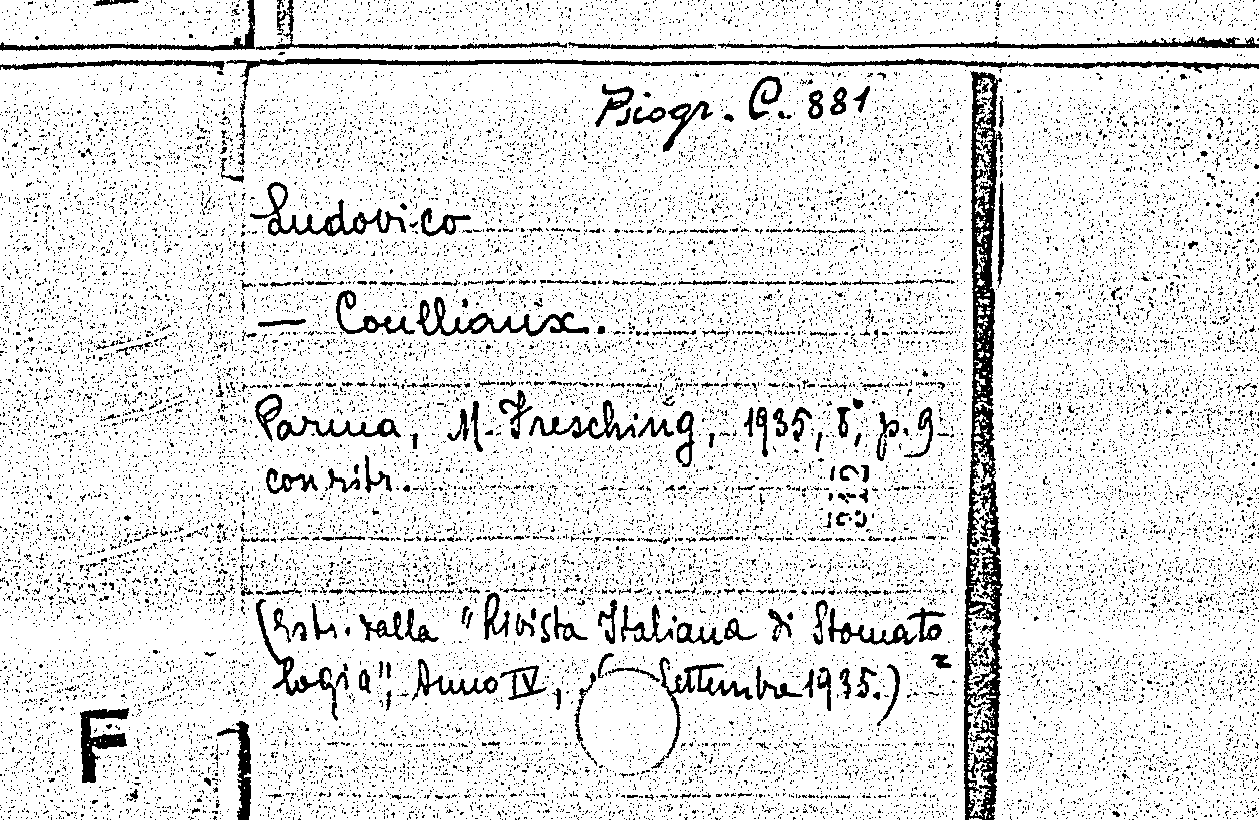 Biogr. C. 881
Ludovico
— Coulliaux.
Parma, M. Fresching, 1935, 8°, p. 9
con ritr.
(Estr. dalla "Rivista Italiana di Stomato=
logia", Anno IV, Settembre 1935.)
F